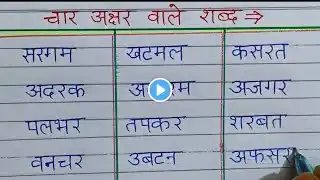 चार अक्षर वाले शब्द ⇒
सरगम खटमल कसरत
अदरक अजगर
पलभर तपकर शरबत
वनचर उबटन अफसर